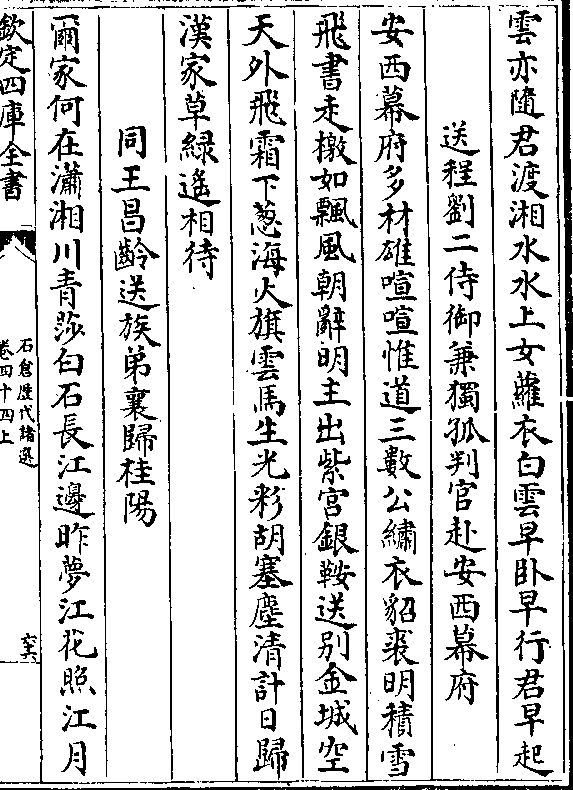 雲亦隨君渡湘水水上女蘿衣白雲早卧早行君早起
送程劉二侍御兼獨孤判官赴安西幕府
安西幕府多材雄喧喧惟道三數公繡衣貂裘明積雪
飛書走檄如飄風朝辭明主出紫宮銀鞍送别金城空
天外飛霜下葱海火旗雲馬生光彩胡塞塵清計日歸
漢家草緑遙相待
同王昌齡送族弟襄歸桂陽
爾家何在瀟湘川青莎白石長江邊昨夢江花照江月
欽定四庫全書
石倉歷代詩選
卷四十四上